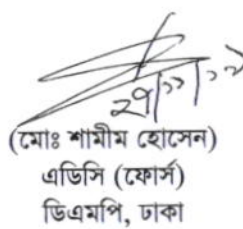 (মোঃ শামীম হোসেন)
এডিসি (ফোর্স)
ডিএমপি, ঢাকা